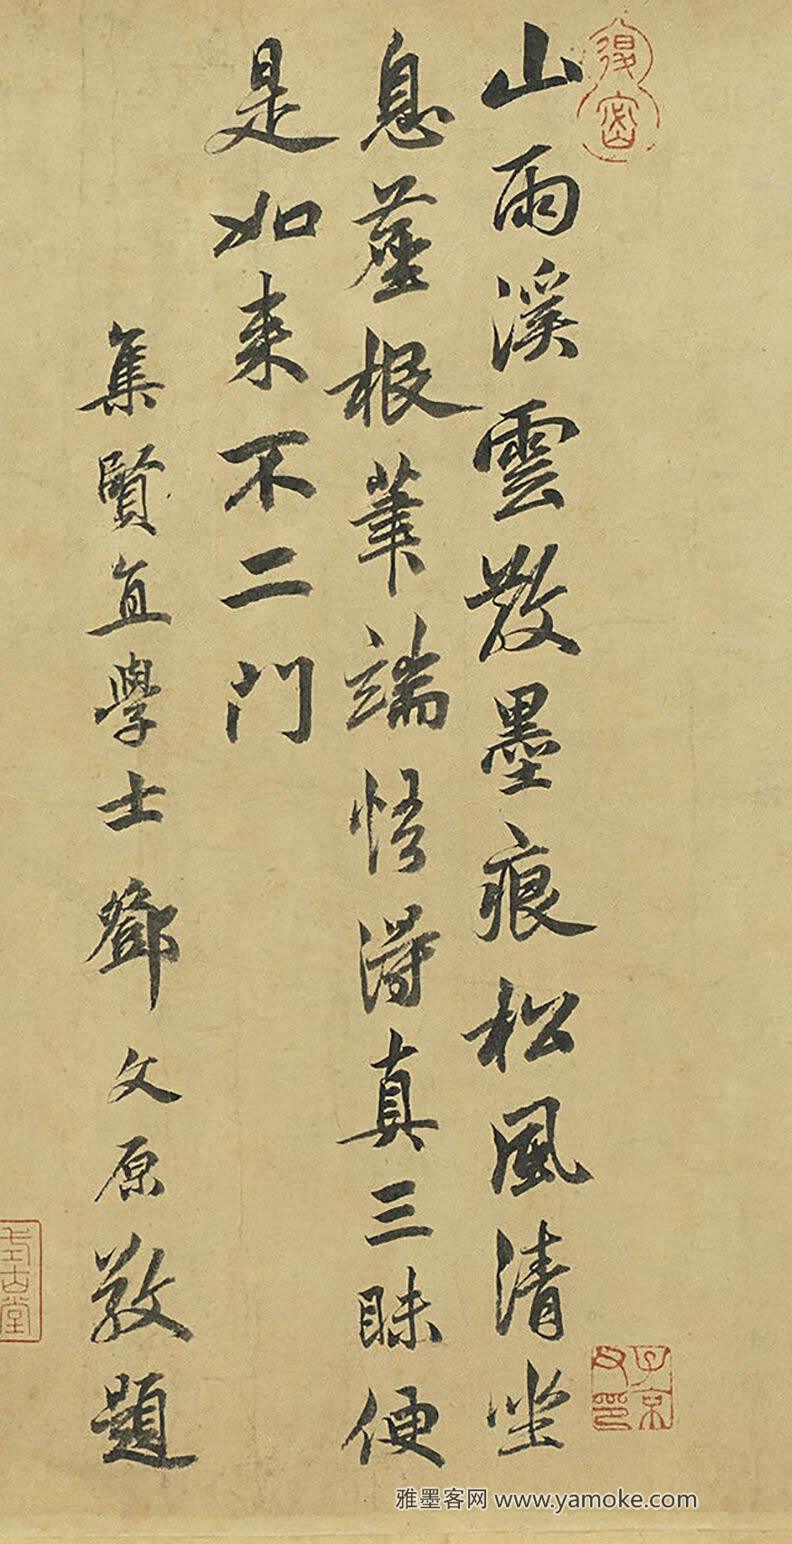 山雨溪雲散墨痕松風清坐
息塵根筆端悟得真三昧便
是如来不二門
集賢直學士鄧文原敬題
子京父印
式古堂
雅墨客网 www.yamoke.com